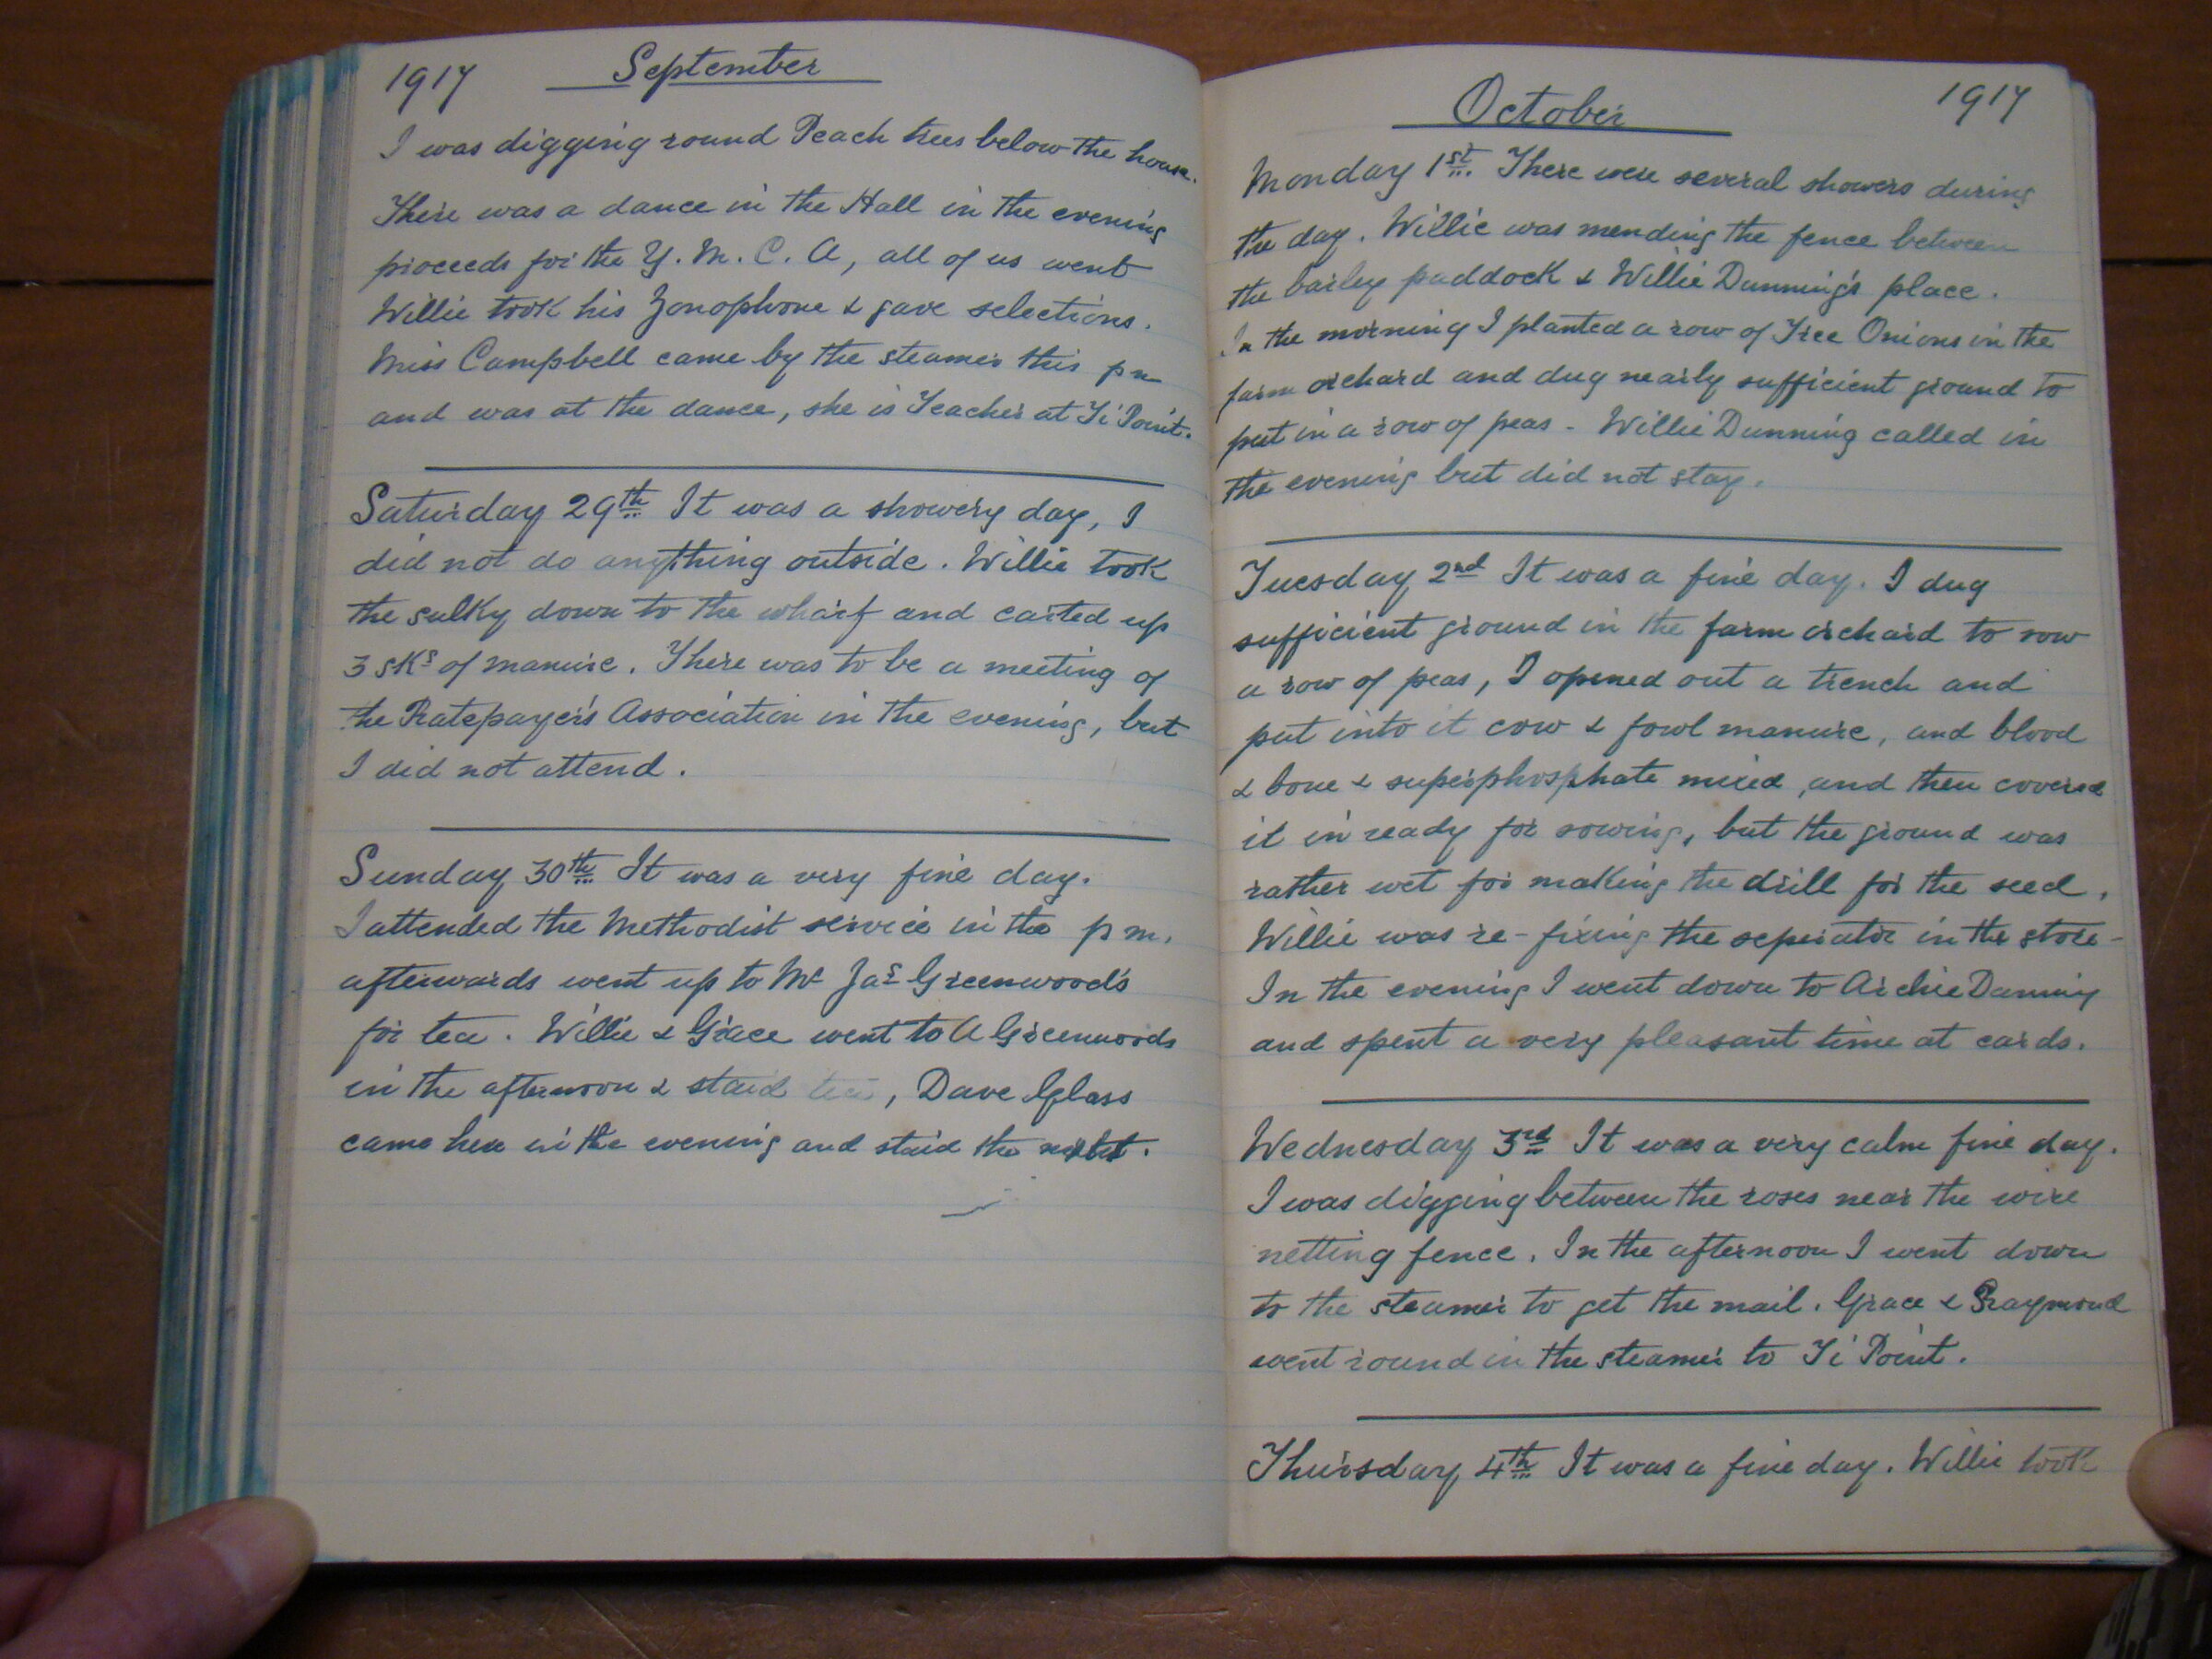 1917 September
I was digging round Peach trees below the house.
There was a dance in the Hall in the evening
proceeds for the Y. M. C. A, all of us went
Willie took his Zonophone & gave selections.
Miss Campbell came by the steamer this pm
and was at the dance, she is Teacher at Ti Point.
Saturday 29th It was a showery day, I
did not do anything outside. Willie took
the sulky down to the wharf and carted up
3 sks of manure. There was to be a meeting of
the Ratepayer's Association in the evening, but
I did not attend.
Sunday 30th It was a very fine day.
I attended the Methodist service in the pm,
afterwards went up to Mr Jas Greenwood's
for tea. Willie & Grace went to A Greenwoods
in the afternoon & staid tea, Dave Glass
came here in the evening and staid the night.
October 1917
Monday 1st. There were several showers during
the day. Willie was mending the fence between
the barley paddock & Willie Dunning's place.
In the morning I planted a row of Tree Onions in the
farm orchard and dug nearly sufficient ground to
put in a row of peas - Willie Dunning called in
the evening but did not stay.
Tuesday 2nd It was a fine day. I dug
sufficient ground in the farm orchard to sow
a row of peas, I opened out a trench and
put into it cow & fowl manure, and blood
& bone & superphosphate mixed, and then covered
it in ready for sowing, but the ground was
rather wet for making the drill for the seed.
Willie was re-fixing the seperator in the store -
In the evening I went down to Archie Dunning
and spent a very pleasant time at cards.
Wednesday 3rd It was a very calm fine day.
I was digging between the roses near the wire
netting fence. In the afternoon I went down
to the steamer to get the mail. Grace & Raymond
went round in the steamer to Ti Point.
Thursday 4th It was a fine day. Willie took